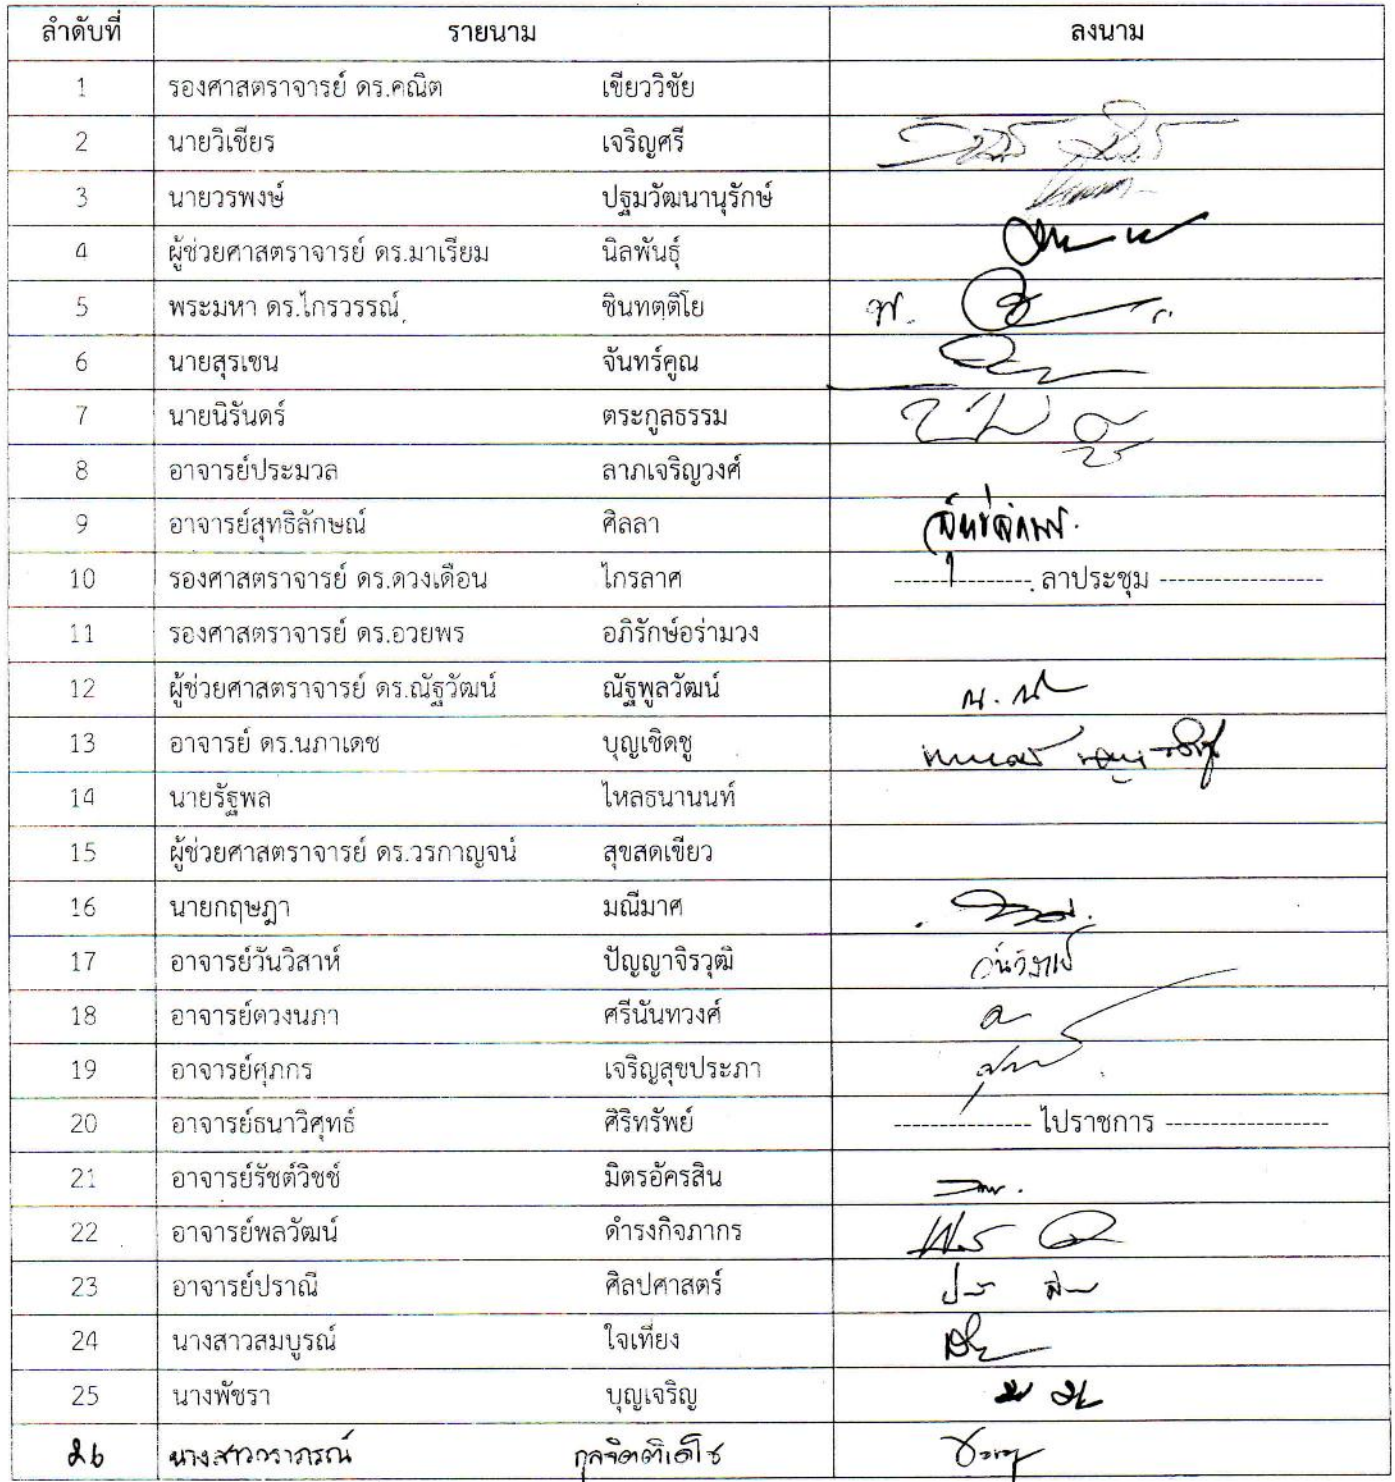 ลำดับที่ รายนาม ลงนาม
1 รองศาสตราจารย์ ดร.คณิต เขียววิชัย
2 นายวิเชียร เจริญศรี
3 นายวรพงษ์ ปฐมวัฒนานุรักษ์
4 ผู้ช่วยศาสตราจารย์ ดร.มาเรียม นิลพันธุ์
5 พระมหา ดร.ไกรวรรณ์ ชินทตฺติโย พ.
6 นายสุรเชน จันทร์คูณ
7 นายนิรันดร์ ตระกูลธรรม
8 อาจารย์ประมวล ลาภเจริญวงศ์
9 อาจารย์สุทธิลักษณ์ ศิลลา
10 รองศาสตราจารย์ ดร.ดวงเดือน ไกรลาศ ---------------- ลาประชุม -------------------
11 รองศาสตราจารย์ ดร.อวยพร อภิรักษ์อร่ามวง
12 ผู้ช่วยศาสตราจารย์ ดร.ณัฐวัฒน์ ณัฐพูลวัฒน์
13 อาจารย์ ดร.นภาเดช บุญเชิดชู
14 นายรัฐพล ไหลธนานนท์
15 ผู้ช่วยศาสตราจารย์ ดร.วรกาญจน์ สุขสดเขียว
16 นายกฤษฎา มณีมาศ
17 อาจารย์วันวิสาห์ ปัญญาจิรวุฒิ
18 อาจารย์ตวงนภา ศรีนันทวงศ์
19 อาจารย์ศุภกร เจริญสุขประภา
20 อาจารย์ธนาวิศุทธ์ ศิริทรัพย์ ---------------- ไปราชการ -------------------
21 อาจารย์รัชต์วิชช์ มิตรอัครสิน
22 อาจารย์พลวัฒน์ ดำรงกิจภากร
23 อาจารย์ปราณี ศิลปศาสตร์
24 นางสาวสมบูรณ์ ใจเที่ยง
25 นางพัชรา บุญเจริญ
26 นางสาววราภรณ์ กุลจิตติเดโช